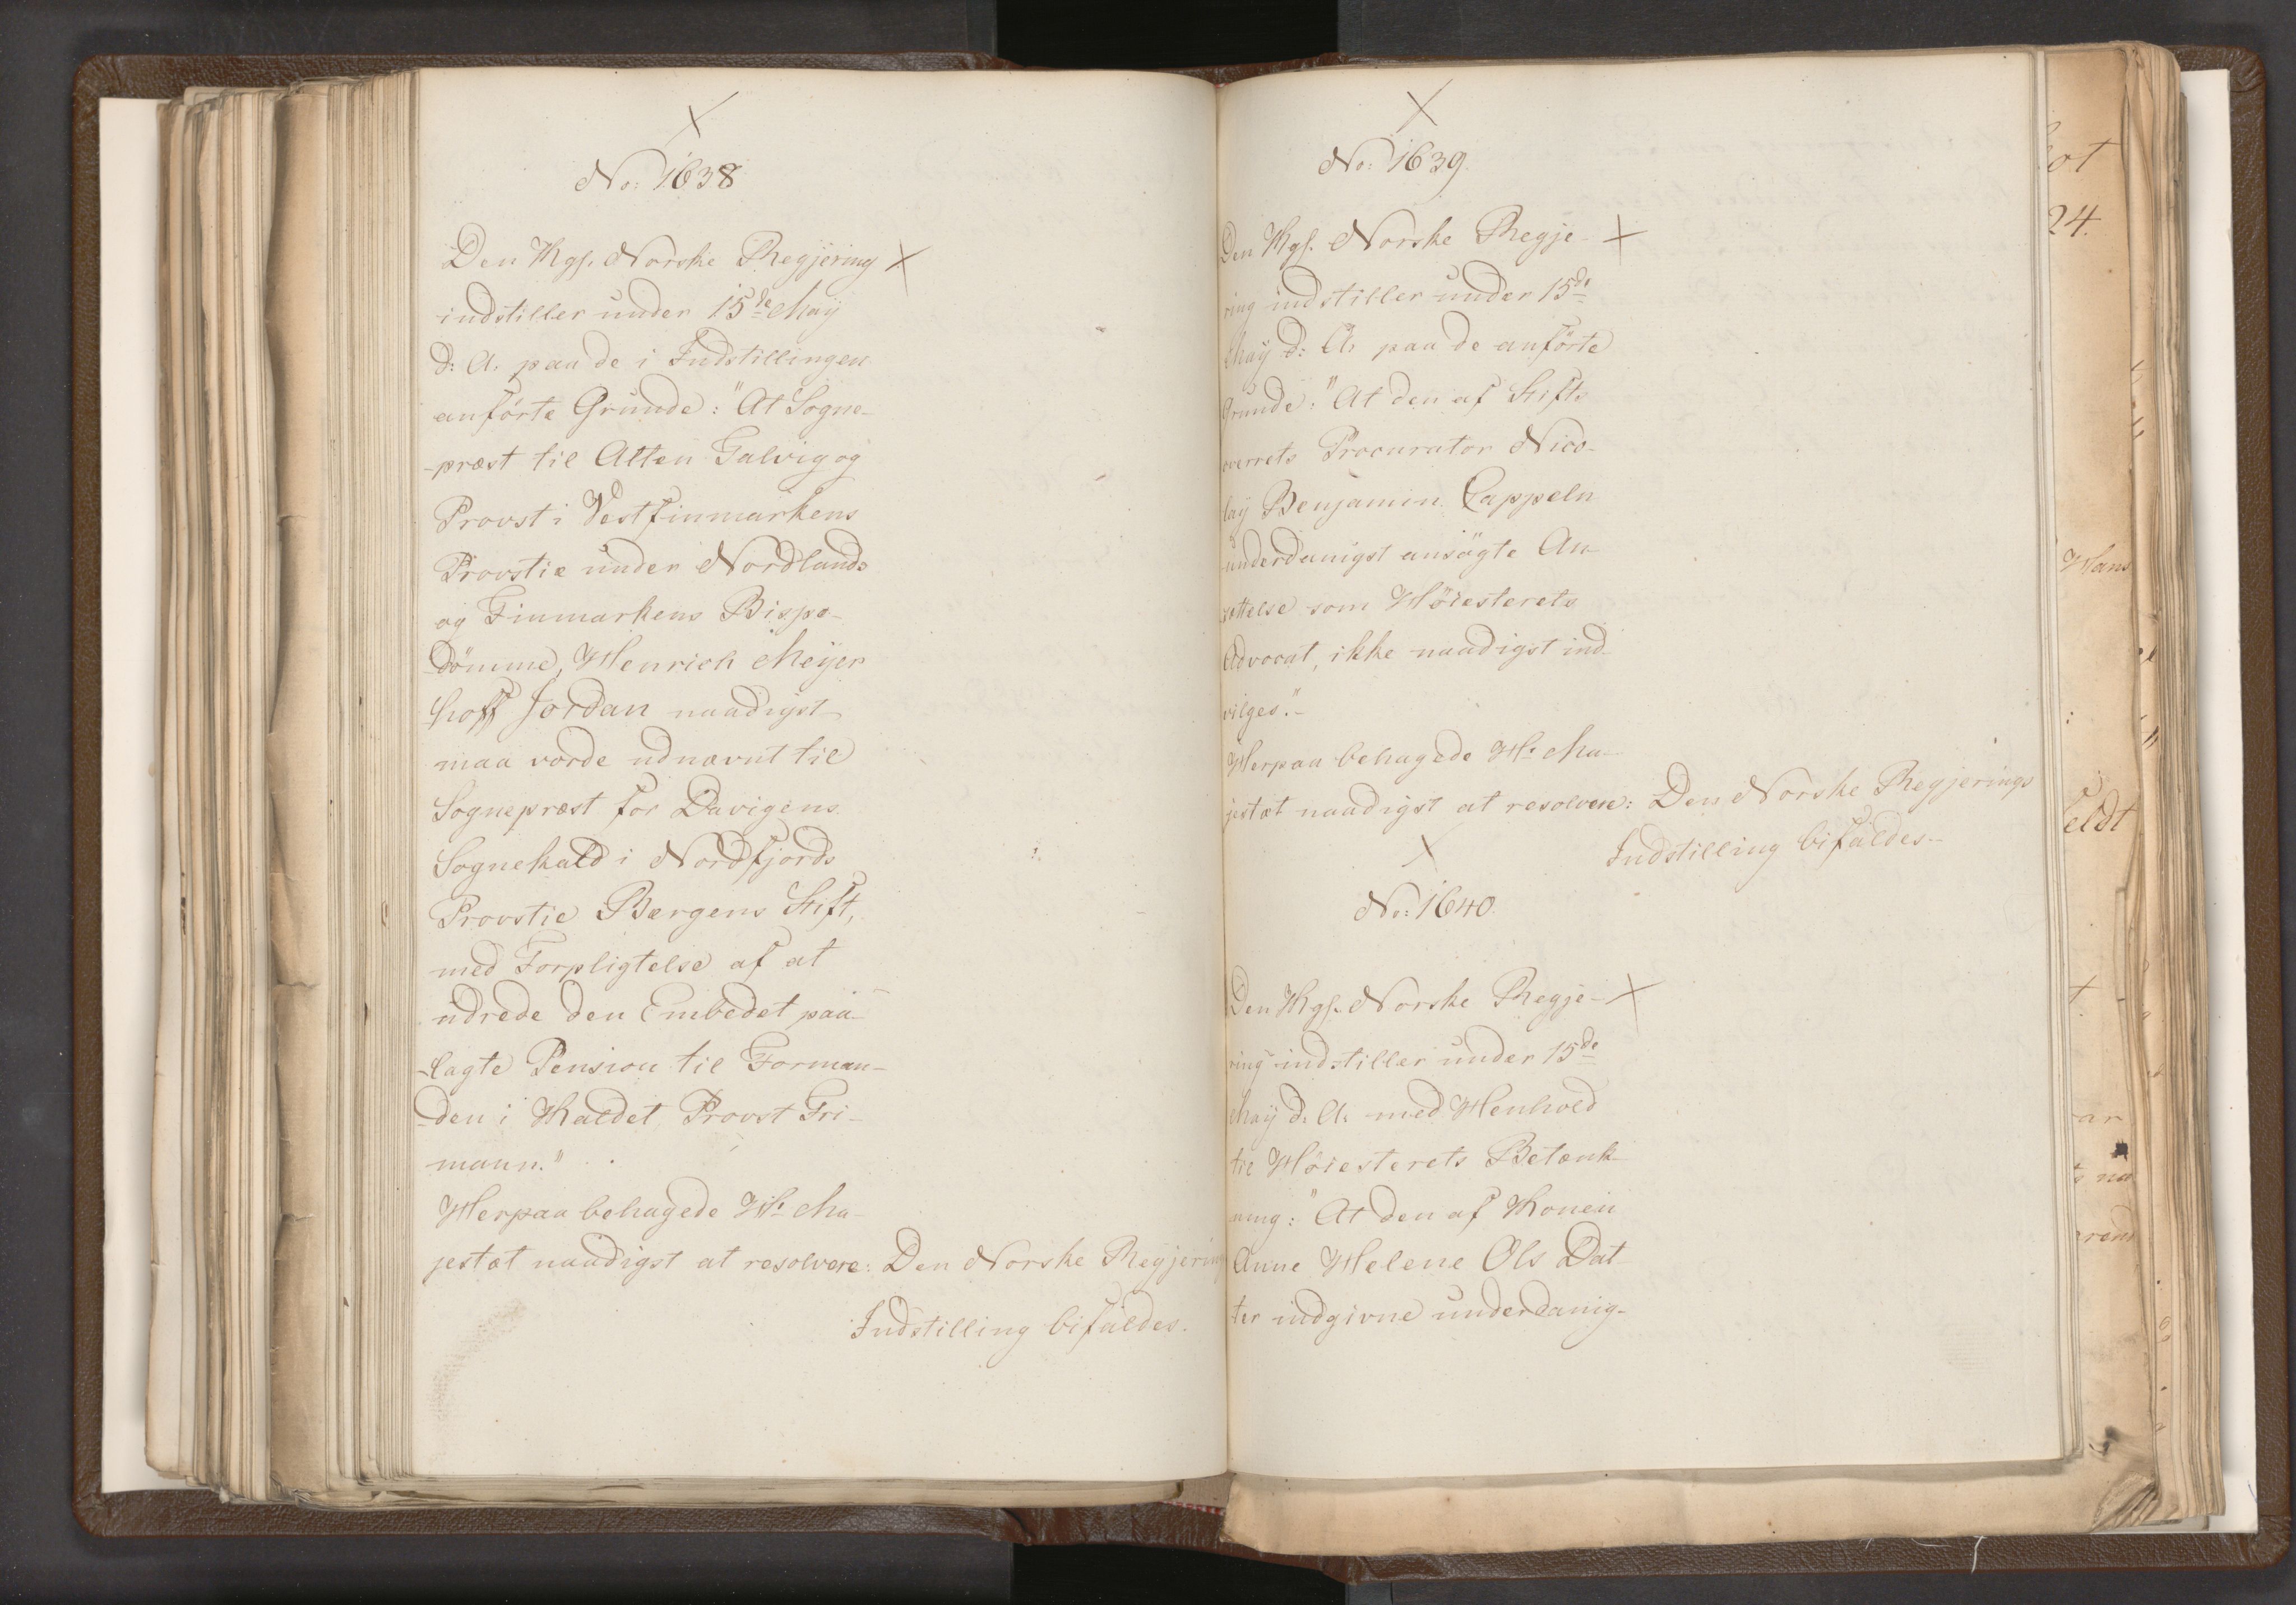 No: 1638
Den Kgl. Norske Regjering
indstiller under 15de May
d: A. paa de i Indstillingen
anförte Grunde: "At Sogne-
præst til Alten Talvig og
Provst i Vestfinmarkens
Provstie under Nordlands
og Finmarkens Bispe-
dömme, Henrich Meyer
hoff Jordan naadigst
maa vorde udnævnt til
Sognepræst for Davigens
Sognekald i Nordfjords
Provstie Bergens Stift,
med Forpligtelse af at
udrede den Embedet paa-
lagte Pension til Forman-
den i Kaldet Provst Fri-
mann."
Herpaa behagede Hs Ma-
jestæt naadigst at resolvere: Den Norske Regjering
Indstilling bifaldes.
No: 1639
Den Kgl. Norske Regje-
ring indstiller under 15de
May d: A. paa de anförte
Grunde: "At den af Stifts
overrets Procurator Nico-
lay Benjamin Cappeln
underdanigst ansögte An-
sættelse som Höiesterets
Advocat, ikke naadigst ind-
vilges."
Herpaa behagede Hs Ma-
jestæt naadigst at resolvere: Den Norske Regjerings
Indstilling bifaldes.
No: 1640
Den Kgl. Norske Regje-
ring indstiller under 15de
May d. A. med Henhold
til Höiesterets Betænk-
ning: "At den af Konen
Anne Helene Ols Dat-
ter indgivne underdanig-
24.
Hans
eldt